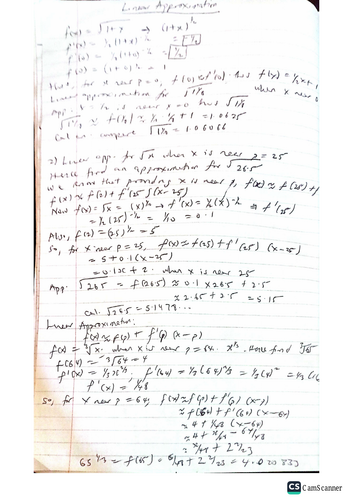 Linear Approximation
f(x) = √1+x → (1+x)^½
f'(x) = ½(1+x)^-½
f'(0) = ½(1+0)^-½ = ½
f(0) = (1+0)^½ = 1
for x near p=0,
Linear approximation for √1⅛ when x near
App. x = ⅛ is near x=0 thus √1⅛
√1⅛ ≈ f(⅛) ≈ ½ · ⅛ + 1 = 1.0625
compare √1⅛ = 1.06066
2) Linear app. for √x when x is near p = 25
Hence find an approximation for √26.5
we know that providing x is near p, f(x) ≈ f(25) +
f(x) ≈ f(p) + f'(25)(x-25)
Now f(x) = √x = (x)^½ → f'(x) = ½(x)^-½ → f'(25)
= ½(25)^-½ = 1/10 = 0.1
Also, f(25) = (25)^½ = 5
So, for x near p = 25, f(x) ≈ f(25) + f'(25) (x-25)
= 5 + 0.1(x-25)
when x is near 25
App: √26.5 = f(26.5) ≈ 0.1 × 26.5 + 2.5
≈ 2.65 + 2.5 = 5.15
Cal. √26.5 = 5.1478...
Linear Approximation:
f(x) ≈ f(p) + f'(p) (x-p)
f(x) = ³√x. when x is near p = 64. x^⅓. Hence find ³√65
f(64) = ³√64 = 4
f'(x) = 1/48
So, for x near p = 64, f(x) ≈ f(p) + f'(p) (x-p)
≈ f(64) + f'(64) (x-64)
= 4 + 1/48 (x-64)
= 4 + x/48 - 64/48
65^⅓ = f(65) = 65/48 + 2 2/3 = 4.020833
CS CamScanner